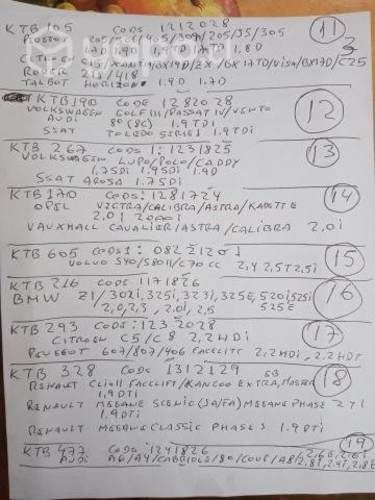 KTB 105 CODS 1212028 11
205/ /405/309/205/35/305
1.9D 1.8D
C15/XANTIA/BX19D/ZX/BX17D/VISA/BX17D/C25
ROVER 218/418
TALBOT HORIZON 1.9D 1.7D
KTB 190 CODE 1282028 12
VOLKSWAGEN GOLF III/PASSAT IV/VENTO
AUDI 80 (8C) 1.9 TDI
SSAT TOLEDO SERIES 1.9TDi
KTB 267 CODS 1: 1231825 13
VOLKSWAGEN LUPO/POLO/CADDY
1.7SDi 1.9SDi 1.9D
SSAT AROSA 1.7SDi
KTB 170 CODS: 1281724 14
OPEL VECTRA/CALIBRA/ASTRA/KADETT E
2.0i 2000i
VAUXHALL CAVALIER/ASTRA/CALIBRA 2.0i
KTB 605 CODS1: 15
VOLVO S40/S80II/C70CC 2,4 2,5T 2,5i
KTB 216 CODS 1171826 16
BMW Z1/302i,325i,323i,325E,520i 525i
2,0,2,3, 2.0i, 2,5 525E
KTB 293 CODS: 1232028 17
CITROEN C5/C8 2,2HDi
PEUGEOT 607/807/406 FACELIFT 2,2HDi, 2.2HDT
KTB 328 CODE 1312129 18
RENAULT CLIO II FACELIFT/KANGOO EXTRA,MASTER
1.9DTi
RENAULT MEGANE SCENIC (JA/FA) MEGANE PHASE 2
1.9DTi
RENAULT MEGANE CLASSIC PHASE 1.9DTi
KTB 477 CODE: 1241826 19
AUDI A6/A4/CABRIOLE/80/COUE/A8/2,8i, 2,4i, 2,8E